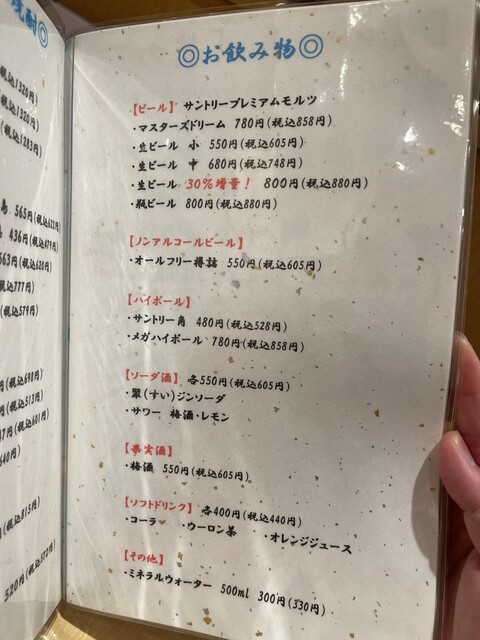 焼酎◎
税込1320円)
税込1320円)
税込1283円)
565円(税込622円)
436円(税込479円)
563円(税込620円)
税込777円)
税込579円)
円(税込698円)
円(税込513円)
円(税込601円)
640円)
円(税込815円)
520円(税込572円)
◎お飲み物◎
【ビール】 サントリープレミアムモルツ
・マスターズドリーム 780円(税込858円)
・生ビール 小 550円(税込605円)
・生ビール 中 680円(税込748円)
・生ビール 30%増量! 800円(税込880円)
・瓶ビール 800円(税込880円)
【ノンアルコールビール】
・オールフリー樽詰 550円(税込605円)
【ハイボール】
・サントリー角 480円(税込528円)
・メガハイボール 780円(税込858円)
【ソーダ酒】 各550円(税込605円)
・翠(すい)ジンソーダ
・サワー 梅酒・レモン
【果実酒】
・梅酒 550円(税込605円)。
【ソフトドリンク】 各400円(税込440円)
・コーラ ・ウーロン茶 ・オレンジジュース
【その他】
・ミネラルウォーター 500ml 300円(330円)